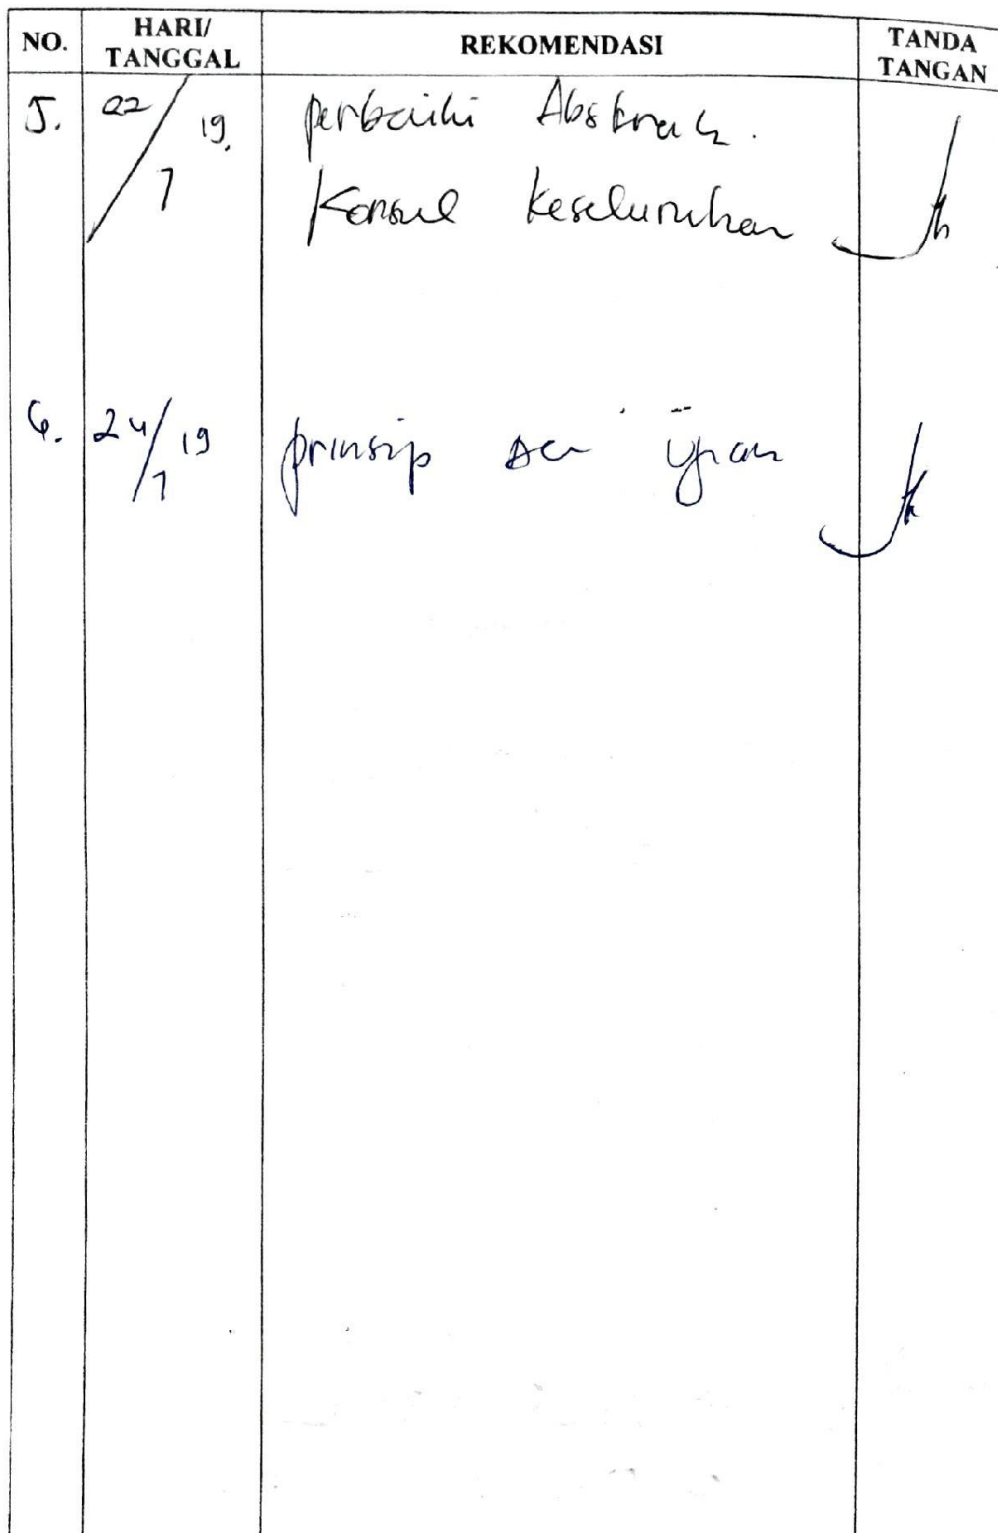 NO. HARI/ TANGGAL REKOMENDASI TANDA TANGAN
5. 22/7 19. perbaiki Abstrak.
Konsul keseluruhan
6. 24/7 19 prinsip Acc ujian